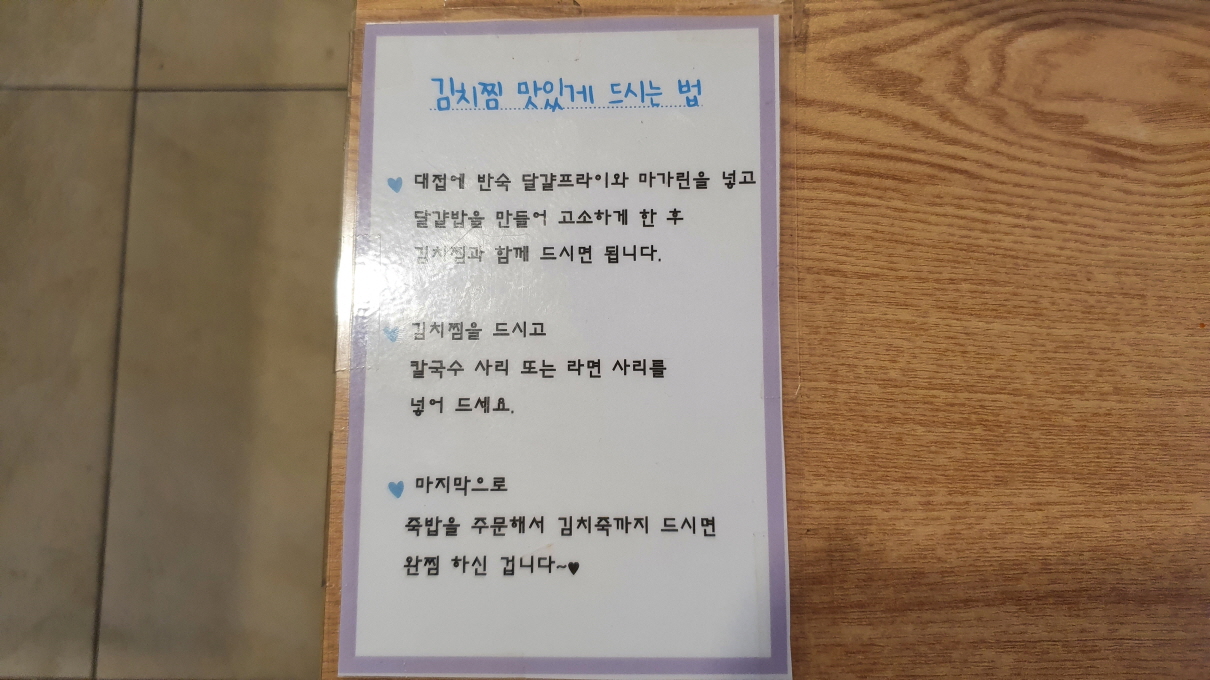 김치찜 맛있게 드시는 법
♥ 대접에 반숙 달걀프라이와 마가린을 넣고
달걀밥을 만들어 고소하게 한 후
김치찜과 함께 드시면 됩니다.
♥ 김치찜을 드시고
칼국수 사리 또는 라면 사리를
넣어 드세요.
♥ 마지막으로
죽밥을 주문해서 김치죽까지 드시면
완찜 하신 겁니다~♥